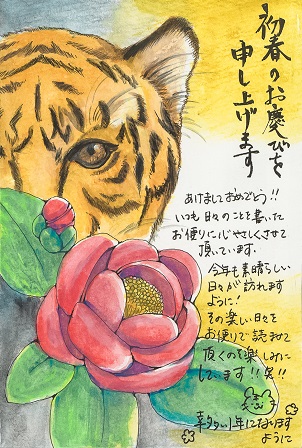 初春のお慶びを
申し上げます
あけましておめでとう!!
いつも日々のことを書いた
お便りに心やさしくさせて
頂いています.
今年も素晴らしい
日々が訪れます
ように!
その楽しい日々を
お便りで読ませて
頂くのを楽しみに
しています!!笑!!
幸多い1年になります
ように